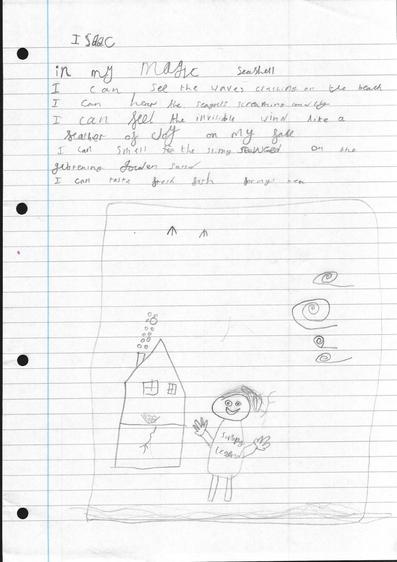 ISaac
in my Magic Seashell
I can see the waves crashing on the beach
I can hear the seagulls screaming
I can feel the invisible wind like a
feather of on my face
I can smell the slimy seaweed on the
golden sand
I can taste fresh fish